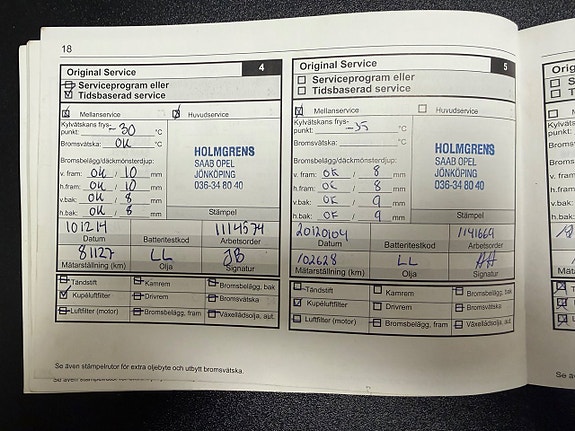 18
Original Service 4
Serviceprogram eller
Tidsbaserad service
Mellanservice Huvudservice
Kylvätskans frys-
punkt: -30 °C
Bromsvätska: OK °C
Bromsbelägg/däckmönsterdjup:
v. fram: OK / 10 mm
h.fram: OK / 10 mm
v.bak: OK / 8 mm
h.bak: OK / 8 mm
HOLMGRENS
SAAB OPEL
JÖNKÖPING
036-34 80 40
Stämpel
101214 1114574
Datum Batteritestkod Arbetsorder
81127 LL JB
Mätarställning (km) Olja Signatur
Tändstift Kamrem Bromsbelägg, bak
Kupéluftfilter Drivrem Bromsvätska
Luftfilter (motor) Bromsbelägg, fram Växellådsolja, aut.
Original Service 5
Serviceprogram eller
Tidsbaserad service
Mellanservice Huvudservice
Kylvätskans frys-
punkt: -35 °C
Bromsvätska: °C
Bromsbelägg/däckmönsterdjup:
v. fram: OK / 8 mm
h.fram: OK / 8 mm
v.bak: OK / 9 mm
h.bak: OK / 9 mm
HOLMGRENS
SAAB OPEL
JÖNKÖPING
036-34 80 40
Stämpel
20120104 1141669
Datum Batteritestkod Arbetsorder
102628 LL AH
Mätarställning (km) Olja Signatur
Tändstift Kamrem Bromsbelägg, bak
Kupéluftfilter Drivrem Bromsvätska
Luftfilter (motor) Bromsbelägg, fram Växellådsolja, aut.
Se även stämpelrutor för extra oljebyte och utbytt bromsvätska.